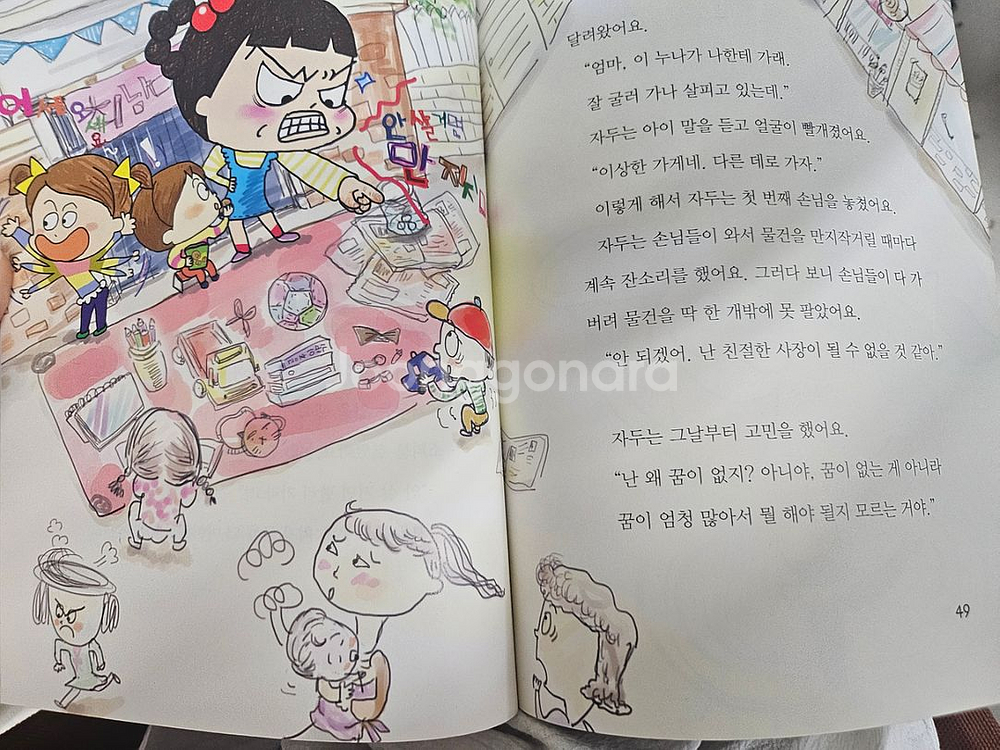 어서
안 살거면
만
달려왔어요.
“엄마, 이 누나가 나한테 가래.
잘 굴러 가나 살피고 있는데.”
자두는 아이 말을 듣고 얼굴이 빨개졌어요.
“이상한 가게네. 다른 데로 가자.”
이렇게 해서 자두는 첫 번째 손님을 놓쳤어요.
자두는 손님들이 와서 물건을 만지작거릴 때마다
계속 잔소리를 했어요. 그러다 보니 손님들이 다 가
버려 물건을 딱 한 개밖에 못 팔았어요.
“안 되겠어. 난 친절한 사장이 될 수 없을 것 같아.”
자두는 그날부터 고민을 했어요.
“난 왜 꿈이 없지? 아니야, 꿈이 없는 게 아니라
꿈이 엄청 많아서 뭘 해야 될지 모르는 거야.”
49